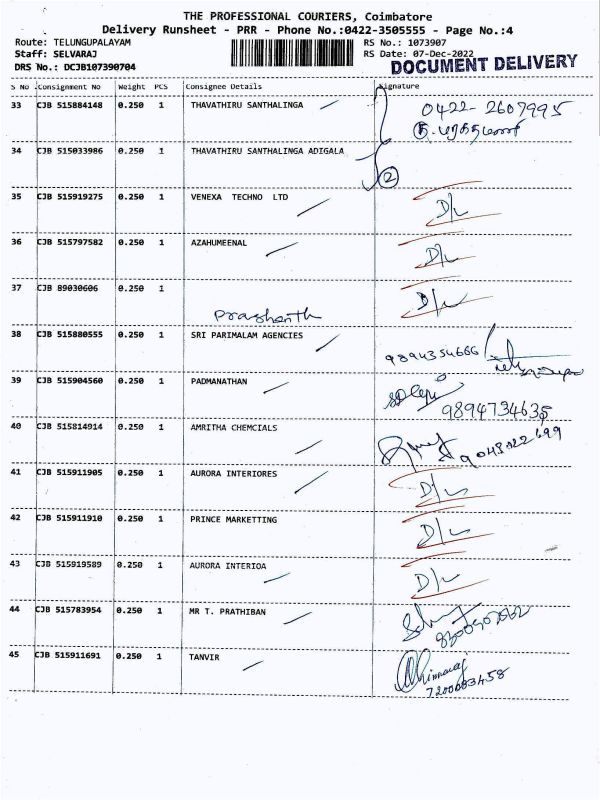 THE PROFESSIONAL COURIERS, Coimbatore
Delivery Runsheet - PRR - Phone No.:0422-3505555 - Page No.:4
Route: TELUNGUPALAYAM RS No.: 1073907
Staff: SELVARAJ RS Date: 07-Dec-2022
DRS No.: DCJB107390704 DOCUMENT DELIVERY
S No Consignment No Weight PCS Consignee Details Signature
33 CJB 515884148 0.250 1 THAVATHIRU SANTHALINGA 0422-2607995
34 CJB 515033986 0.250 1 THAVATHIRU SANTHALINGA ADIGALA
2
35 CJB 515919275 0.250 1 VENEXA TECHNO LTD D/L
36 CJB 515797582 0.250 1 AZAHUMEENAL D/L
37 CJB 89030606 0.250 1 D/L
Prashanth
38 CJB 515880555 0.250 1 SRI PARIMALAM AGENCIES 9894354666
39 CJB 515904560 0.250 1 PADMANATHAN
9894734635
40 CJB 515814914 0.250 1 AMRITHA CHEMCIALS 9043022699
41 CJB 515911905 0.250 1 AURORA INTERIORES D/L
42 CJB 515911910 0.250 1 PRINCE MARKETTING D/L
43 CJB 515919589 0.250 1 AURORA INTERIOA D/L
44 CJB 515783954 0.250 1 MR T. PRATHIBAN
45 CJB 515911691 0.250 1 TANVIR
7200083458